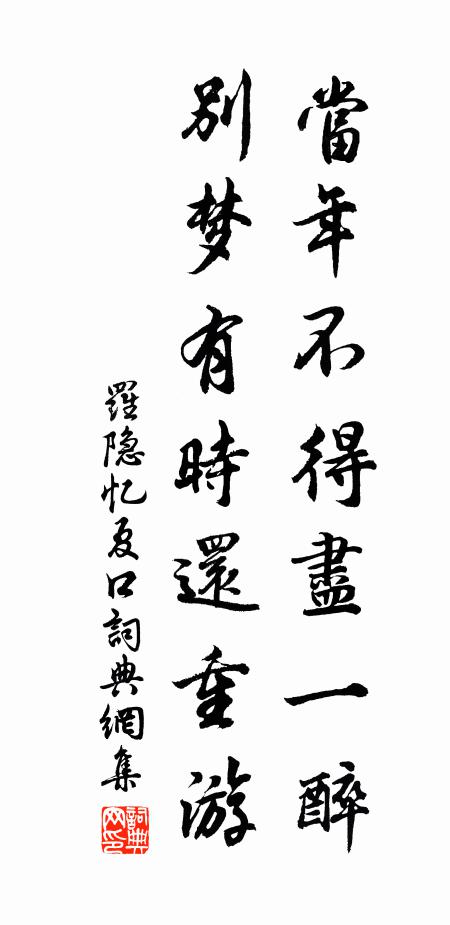 當年不得盡一醉
别梦有時還重游
羅隐忆夏口詞典網集
詞典网印